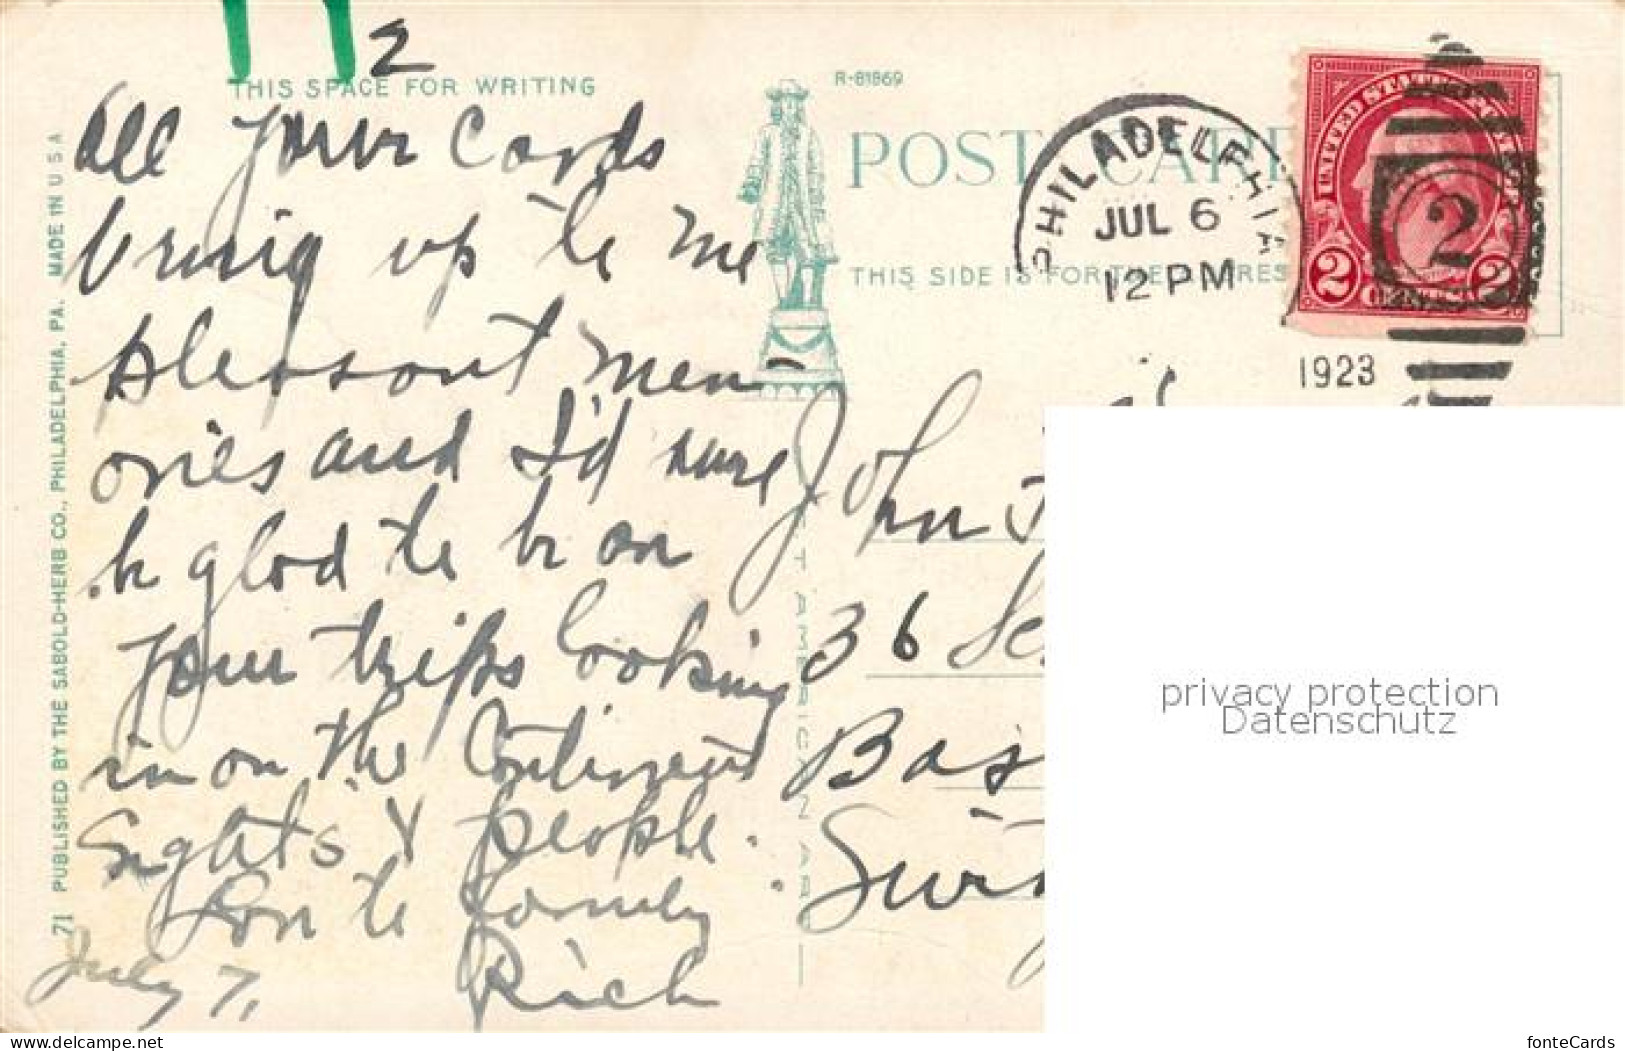 2
THIS SPACE FOR WRITING
All your Cards
bring up to me
pleasant mem-
ories and I'd sure
be glad to be on
your trips looking
in on the Continent
Sights & people.
Lov to family
July 7, Rich
71 PUBLISHED BY THE SABOLD-HERB CO., PHILADELPHIA, PA. MADE IN U S A
R-81869
POST CAR
THIS SIDE IS FOR THE ADDRES
PHILADELPHIA
JUL 6
12 PM
1923
UNITED STATES POSTAGE
2 CENTS 2
2
ST AMERICAN AR
John J
36 Se
Bas
Swi
privacy protection
Datenschutz
alle-ansichtskarten.com
fonteCards